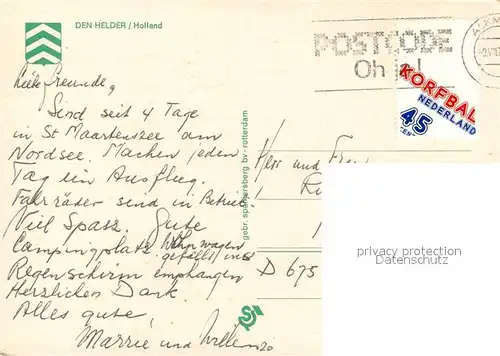 DEN HELDER / Holland
POSTCODE
Oh
KORFBAL
NEDERLAND
45
Liebe Freunde,
Sind seit 4 Tage
in St Maartenszee am
Nordsee. Machen jeden
Tag ein Ausflug.
Fahrräder sind in Betrieb!
Viel Spasz. Gute
Campingplatz. Wohnwagen
gefällt uns
Regenschirm emphangen
Herzlichen Dank.
Alles gute,
Marrie und
gebr. spanjersberg bv - rotterdam
Herr und
D 675
privacy protection
Datenschutz